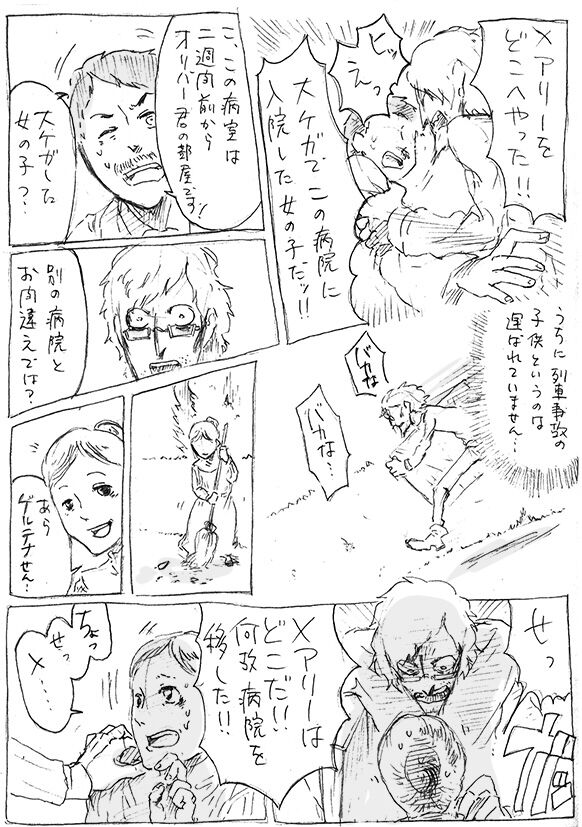 メアリーを
どこへやった!!
ヒッ
えっ
大ケガで この病院に
入院した 女の子だッ!!
こ、この病室は
二週間前から
オリバー君の部屋です!
大ケガした
女の子?
別の病院と
お間違えでは?
うちに 列車事故の
子供というのは
運ばれていません…
バカな
バカな…
あら
ゲルテナせん…
せっ
メアリーは
どこだい
何故 病院を
移した!!
ちょっ
せっ
メ…